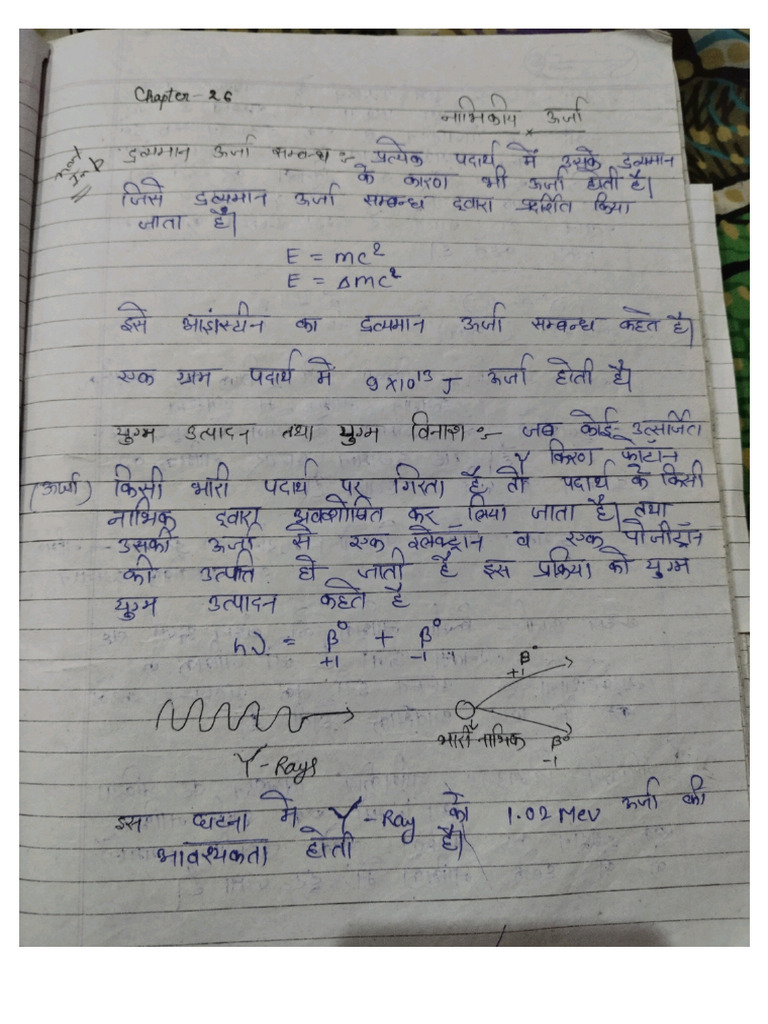 Chapter - 26
नाभिकीय ऊर्जा
Most Imp
द्रव्यमान ऊर्जा सम्बन्ध :- प्रत्येक पदार्थ में उसके द्रव्यमान
के कारण भी ऊर्जा होती है।
जिसे द्रव्यमान ऊर्जा सम्बन्ध द्वारा प्रदर्शित किया
जाता है।
E = mc²
E = Δmc²
इसे आइंस्टीन का द्रव्यमान ऊर्जा सम्बन्ध कहते है।
एक ग्राम पदार्थ में 9×10¹³ J ऊर्जा होती है।
युग्म उत्पादन तथा युग्म विनाश :- जब कोई उत्सर्जित
γ किरण फोटॉन
(ऊर्जा) किसी भारी पदार्थ पर गिरता है तो पदार्थ के किसी
नाभिक द्वारा अवशोषित कर लिया जाता है। तथा
उसकी ऊर्जा से एक इलेक्ट्रॉन व एक पोजीट्रॉन
की उत्पति हो जाती है इस प्रक्रिया को युग्म
युग्म उत्पादन कहते है
hν = ₊₁β⁰ + ₋₁β⁰
₊₁β⁰
γ-Rays
भारी नाभिक ₋₁β⁰
इस घटना मे γ-Ray को 1.02 MeV ऊर्जा की
आवश्यकता होती है।